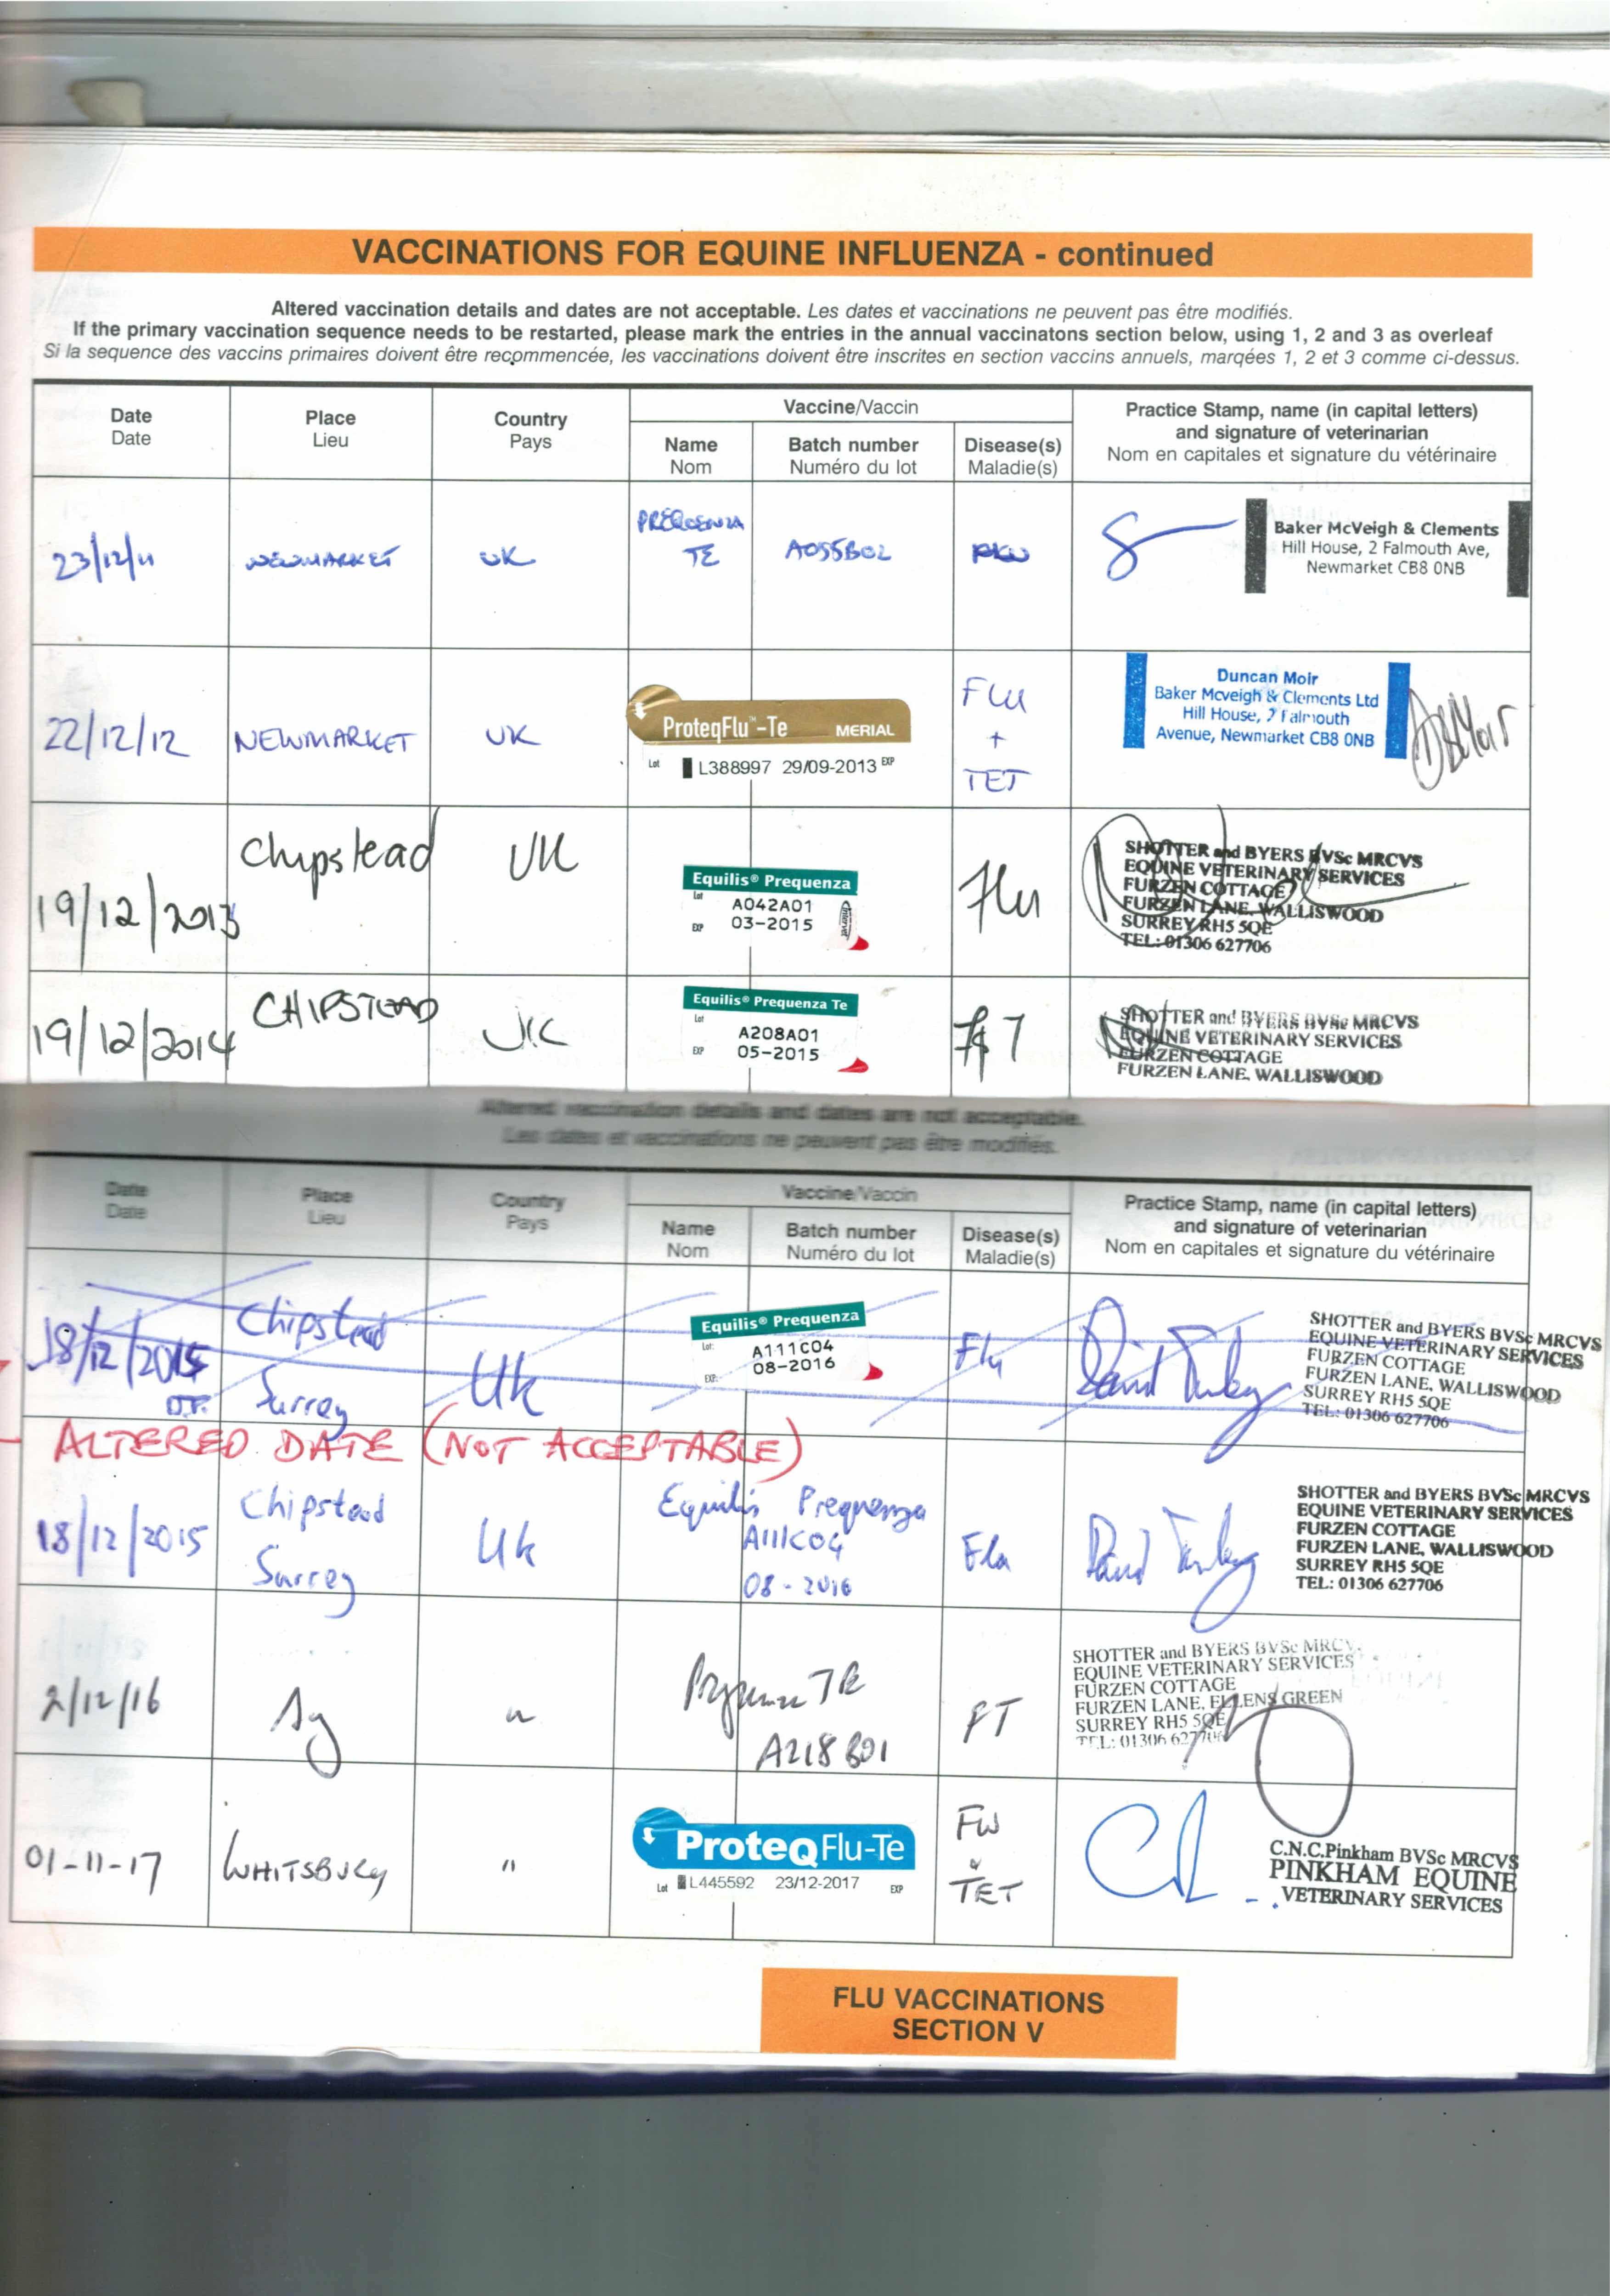 VACCINATIONS FOR EQUINE INFLUENZA - continued
Altered vaccination details and dates are not acceptable. Les dates et vaccinations ne peuvent pas être modifiés.
If the primary vaccination sequence needs to be restarted, please mark the entries in the annual vaccinatons section below, using 1, 2 and 3 as overleaf
Si la sequence des vaccins primaires doivent être recommencée, les vaccinations doivent être inscrites en section vaccins annuels, marqées 1, 2 et 3 comme ci-dessus.
Date
Date
Place
Lieu
Country
Pays
Vaccine/Vaccin
Name
Nom
Batch number
Numéro du lot
Disease(s)
Maladie(s)
Practice Stamp, name (in capital letters)
and signature of veterinarian
Nom en capitales et signature du vétérinaire
23/12/11
NEWMARKET
UK
PREQUENZA
TE
A055B02
Baker McVeigh & Clements
Hill House, 2 Falmouth Ave,
Newmarket CB8 0NB
22/12/12
NEWMARKET
UK
ProteqFlu™-Te MERIAL
Lot L388997 29/09-2013 EXP
FLU
+
TET
Duncan Moir
Baker Mcveigh & Clements Ltd
Hill House, 2 Falmouth
Avenue, Newmarket CB8 0NB
DSMoir
19/12/2013
Chipstead
UK
Equilis® Prequenza
Lot A042A01
EXP 03-2015
Intervet
Flu
SHOTTER and BYERS BVSc MRCVS
EQUINE VETERINARY SERVICES
FURZEN COTTAGE
FURZEN LANE. WALLISWOOD
SURREY RH5 5QE
TEL: 01306 627706
19/12/2014
CHIPSTEAD
UK
Equilis® Prequenza Te
Lot A208A01
EXP 05-2015
SHOTTER and BYERS BVSc MRCVS
EQUINE VETERINARY SERVICES
FURZEN COTTAGE
FURZEN LANE. WALLISWOOD
Altered vaccination details and dates are not acceptable.
Les dates et vaccinations ne peuvent pas être modifiés.
Date
Date
Place
Lieu
Country
Pays
Vaccine/Vaccin
Name
Nom
Batch number
Numéro du lot
Disease(s)
Maladie(s)
Practice Stamp, name (in capital letters)
and signature of veterinarian
Nom en capitales et signature du vétérinaire
18/12/2015
D.T.
Chipstead
Surrey
Uk
Equilis® Prequenza
Lot: A111C04
EXP: 08-2016
Flu
SHOTTER and BYERS BVSc MRCVS
EQUINE VETERINARY SERVICES
FURZEN COTTAGE
FURZEN LANE, WALLISWOOD
SURREY RH5 5QE
TEL: 01306 627706
ALTERED DATE (NOT ACCEPTABLE)
18/12/2015
Chipstead
Surrey
Uk
Equilis Prequenza
A111C04
08-2016
Flu
SHOTTER and BYERS BVSc MRCVS
EQUINE VETERINARY SERVICES
FURZEN COTTAGE
FURZEN LANE, WALLISWOOD
SURREY RH5 5QE
TEL: 01306 627706
2/12/16
A218B01
FT
SHOTTER and BYERS BVSc MRCV
EQUINE VETERINARY SERVICES
FURZEN COTTAGE
FURZEN LANE. ELLENS GREEN
SURREY RH5 5QE
TEL: 01306 627706
01-11-17
WHITSBURY
"
ProteqFlu-Te
Lot L445592 23/12-2017 EXP
FLU
&
TET
C.N.C.Pinkham BVSc MRCVS
PINKHAM EQUINE
VETERINARY SERVICES
FLU VACCINATIONS
SECTION V